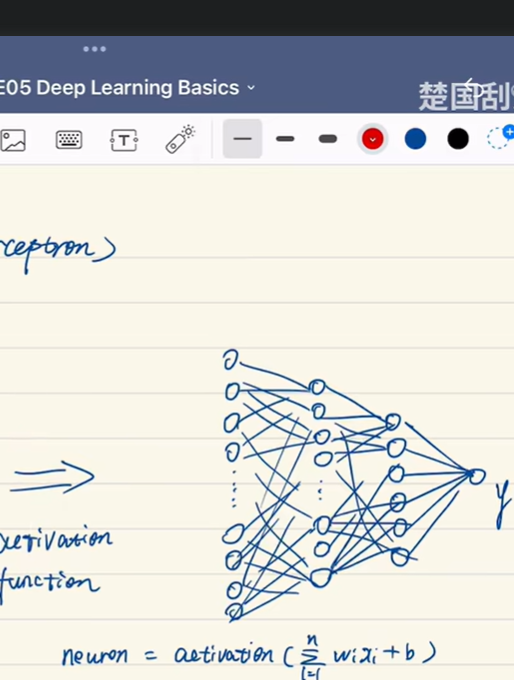 E05 Deep Learning Basics
楚国刮
T
ceptron)
activation
function
y
neuron = activation ( n∑i=1 wixi + b )